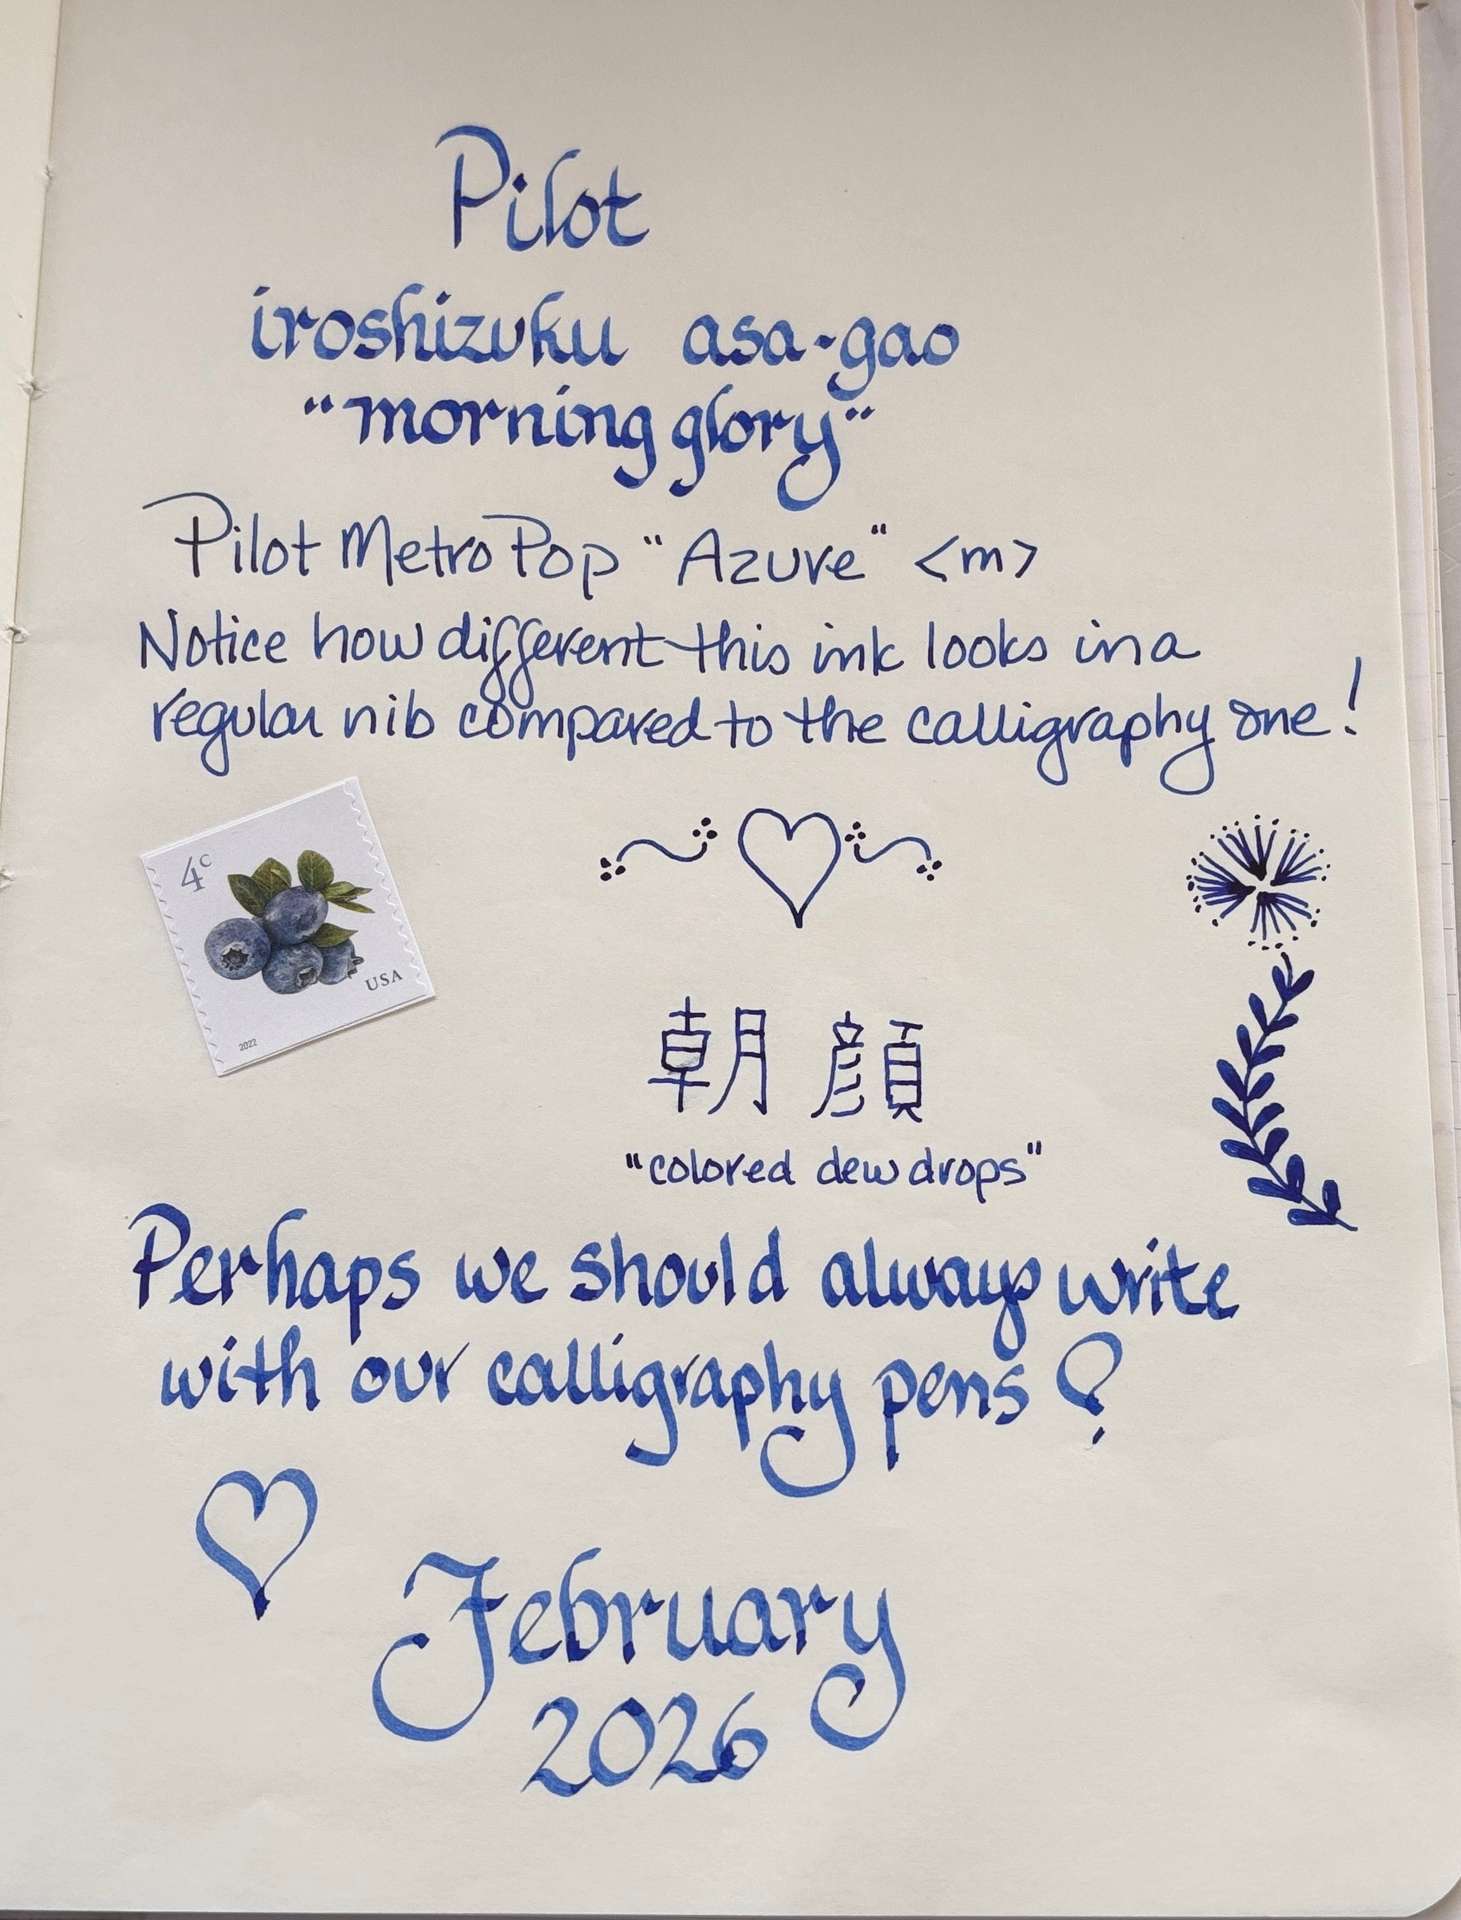 Pilot
iroshizuku asa-gao
"morning glory"
Pilot MetroPop "Azure" <m>
Notice how different this ink looks in a
regular nib compared to the calligraphy one!
4c
USA
2022
朝顔
"colored dewdrops"
Perhaps we should always write
with our calligraphy pens?
February
2026